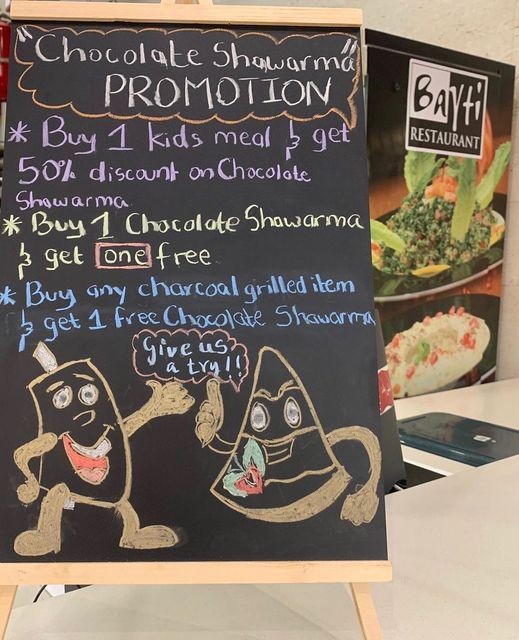 "Chocolate Shawarma"
PROMOTION
* Buy 1 kids meal & get
50% discount on Chocolate
Shawarma
* Buy 1 Chocolate Shawarma
& get one free
* Buy any charcoal grilled item
& get 1 free Chocolate Shawarma
Give us
a try!!
Bayti
RESTAURANT